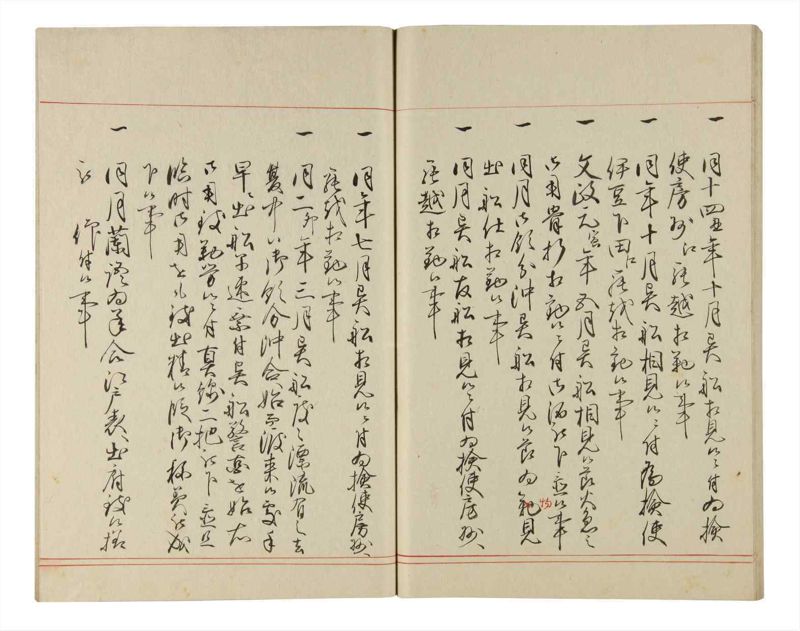 一 同十四丑年十月異船相見候ニ付為検
使房州江罷越相勤候事
一 同年十月異船相見候ニ付為検使
伊豆下田江罷越相勤候事
一 文政元寅年五月異船相見候節火急之
御用骨折相勤候ニ付御酒被下置候事
一 同月御領分沖異船相見候節為見
出船仕相勤候事
一 同月異船 船相見候ニ付為検使房州
罷越相勤候事
一 同年七月異船相見候ニ付為検使房州
罷越相勤候事
一 同二卯年三月異船度々漂流有之去
夏中御領分沖合始而渡来候処
早々出船 速 付異船警 始
御用致勤労候ニ付真綿二把被下置且
臨時御用 致出精候段御称美被成
下候事
一 同月蘭 為 合江戸表出府致候様
被
仰付候事
物